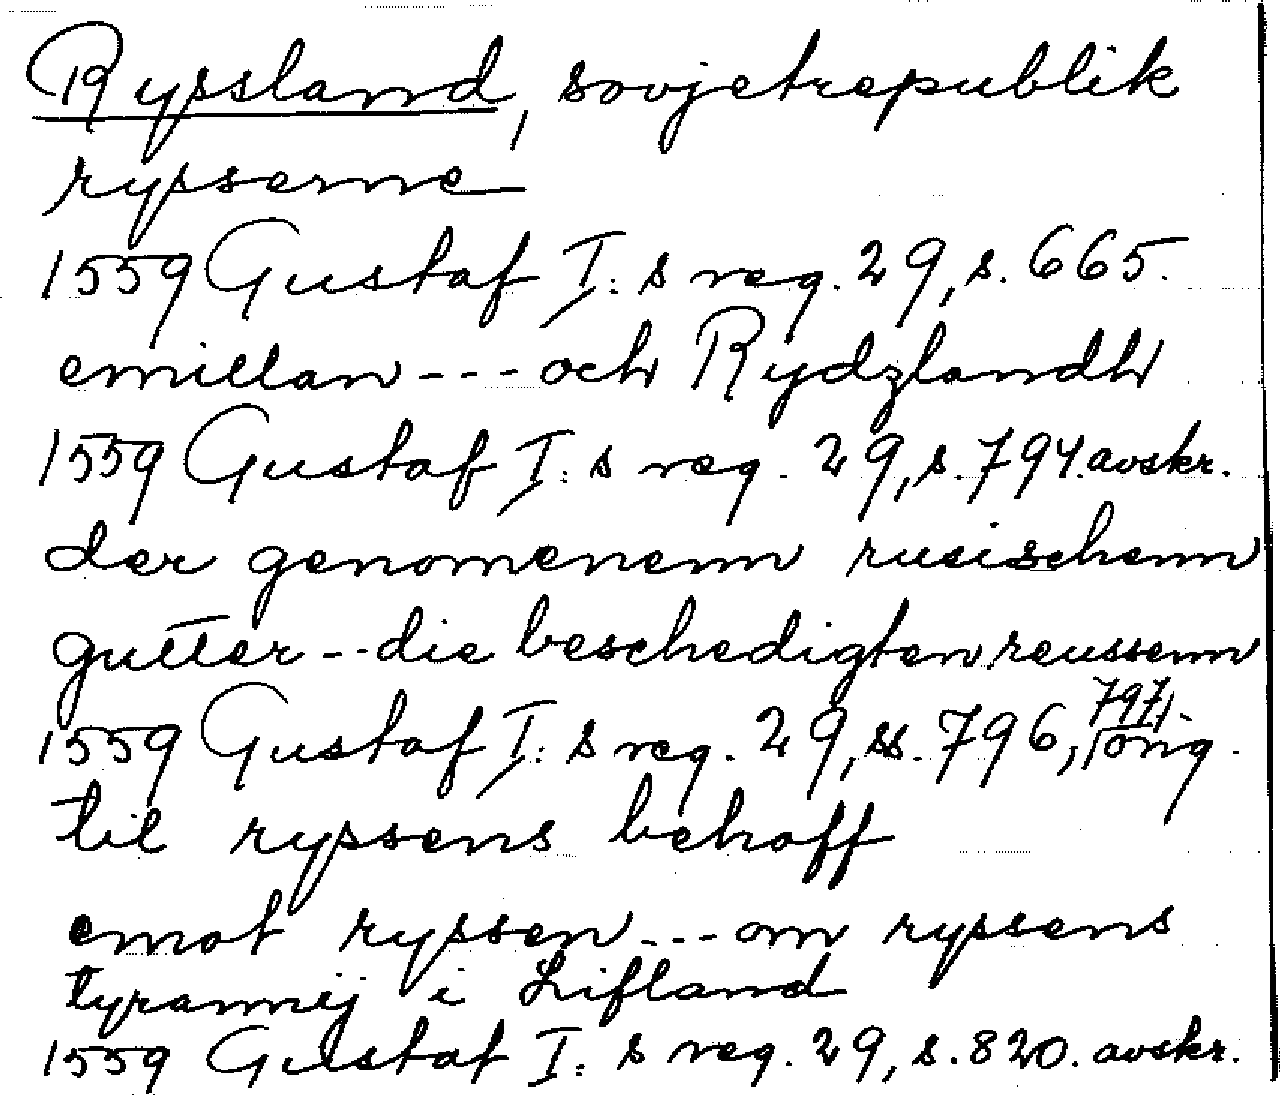 Ryssland, sovjetrepublik
rysserne
1559 Gustaf I:s reg. 29, s. 665.
emillan --- och Rydzlandh
1559 Gustaf I:s reg. 29, s. 794. avskr.
der genomenenn rusischenn
gutter -- die beschedigten reussenn
1559 Gustaf I:s reg. 29, ss. 796, 797, orig.
til ryssens behoff
emot ryssen --- om ryssens
tyrannij i Lifland
1559 Gustaf I:s reg. 29, s. 820. avskr.